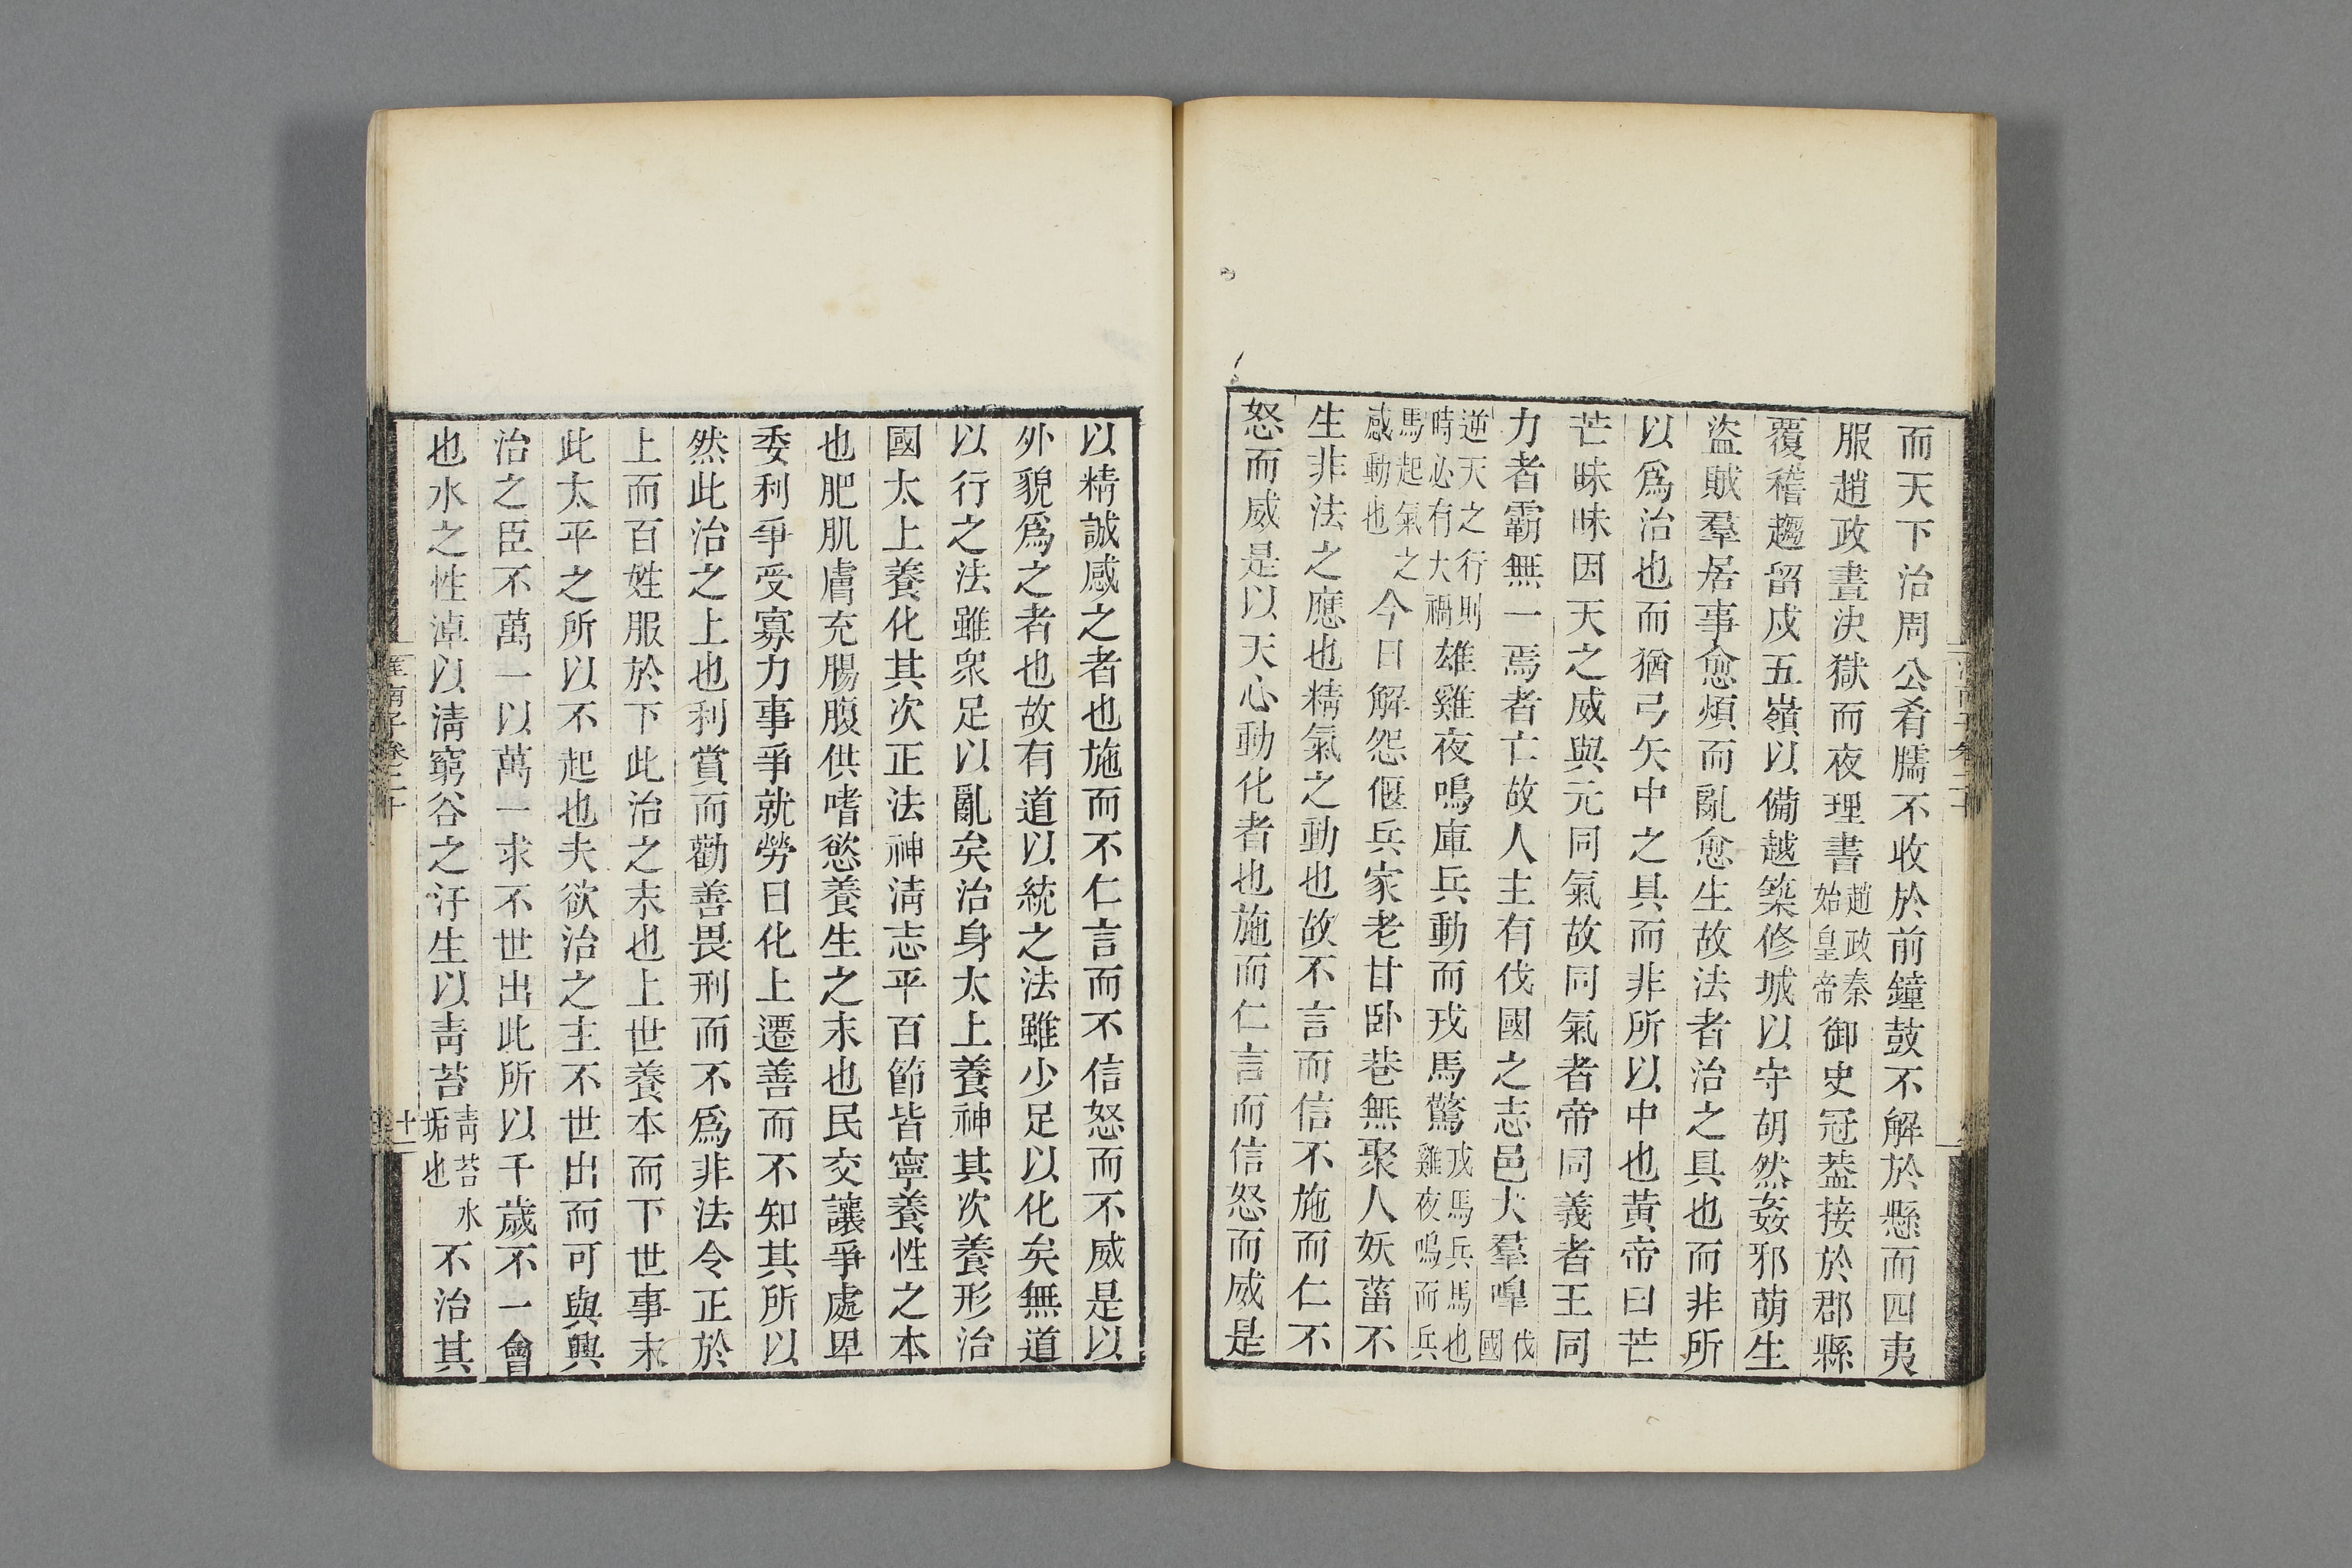 而天下治周公肴臑不收於前鐘鼓不解於懸而四夷
服趙政晝決獄而夜理書趙政秦始皇帝御史冠蓋接於郡縣
覆稽趨留戍五嶺以備越築修城以守胡然姦邪萌生
盜賊羣居事愈煩而亂愈生故法者治之具也而非所
以爲治也而猶弓矢中之具而非所以中也黃帝曰芒
芒昧昧因天之威與元同氣故同氣者帝同義者王同
力者霸無一焉者亡故人主有伐國之志邑犬羣嘷伐國
逆天之行則時必有大禍雄雞夜鳴庫兵動而戎馬驚戎馬兵馬也雞夜鳴而兵
馬起氣之感動也今日解怨偃兵家老甘卧巷無聚人妖菑不
生非法之應也精氣之動也故不言而信不施而仁不
怒而威是以天心動化者也施而仁言而信怒而威是
以精誠感之者也施而不仁言而不信怒而不威是以
外貌爲之者也故有道以統之法雖少足以化矣無道
以行之法雖衆足以亂矣治身太上養神其次養形治
國太上養化其次正法神淸志平百節皆寧養性之本
也肥肌膚充腸腹供嗜慾養生之末也民交讓爭處卑
委利爭受寡力事爭就勞日化上遷善而不知其所以
然此治之上也利賞而勸善畏刑而不爲非法令正於
上而百姓服於下此治之末也上世養本而下世事末
此太平之所以不起也夫欲治之主不世出而可與興
治之臣不萬一以萬一求不世出此所以千歲不一會
也水之性淖以淸窮谷之汙生以靑苔靑苔水垢也不治其
淮南子卷二十
十一